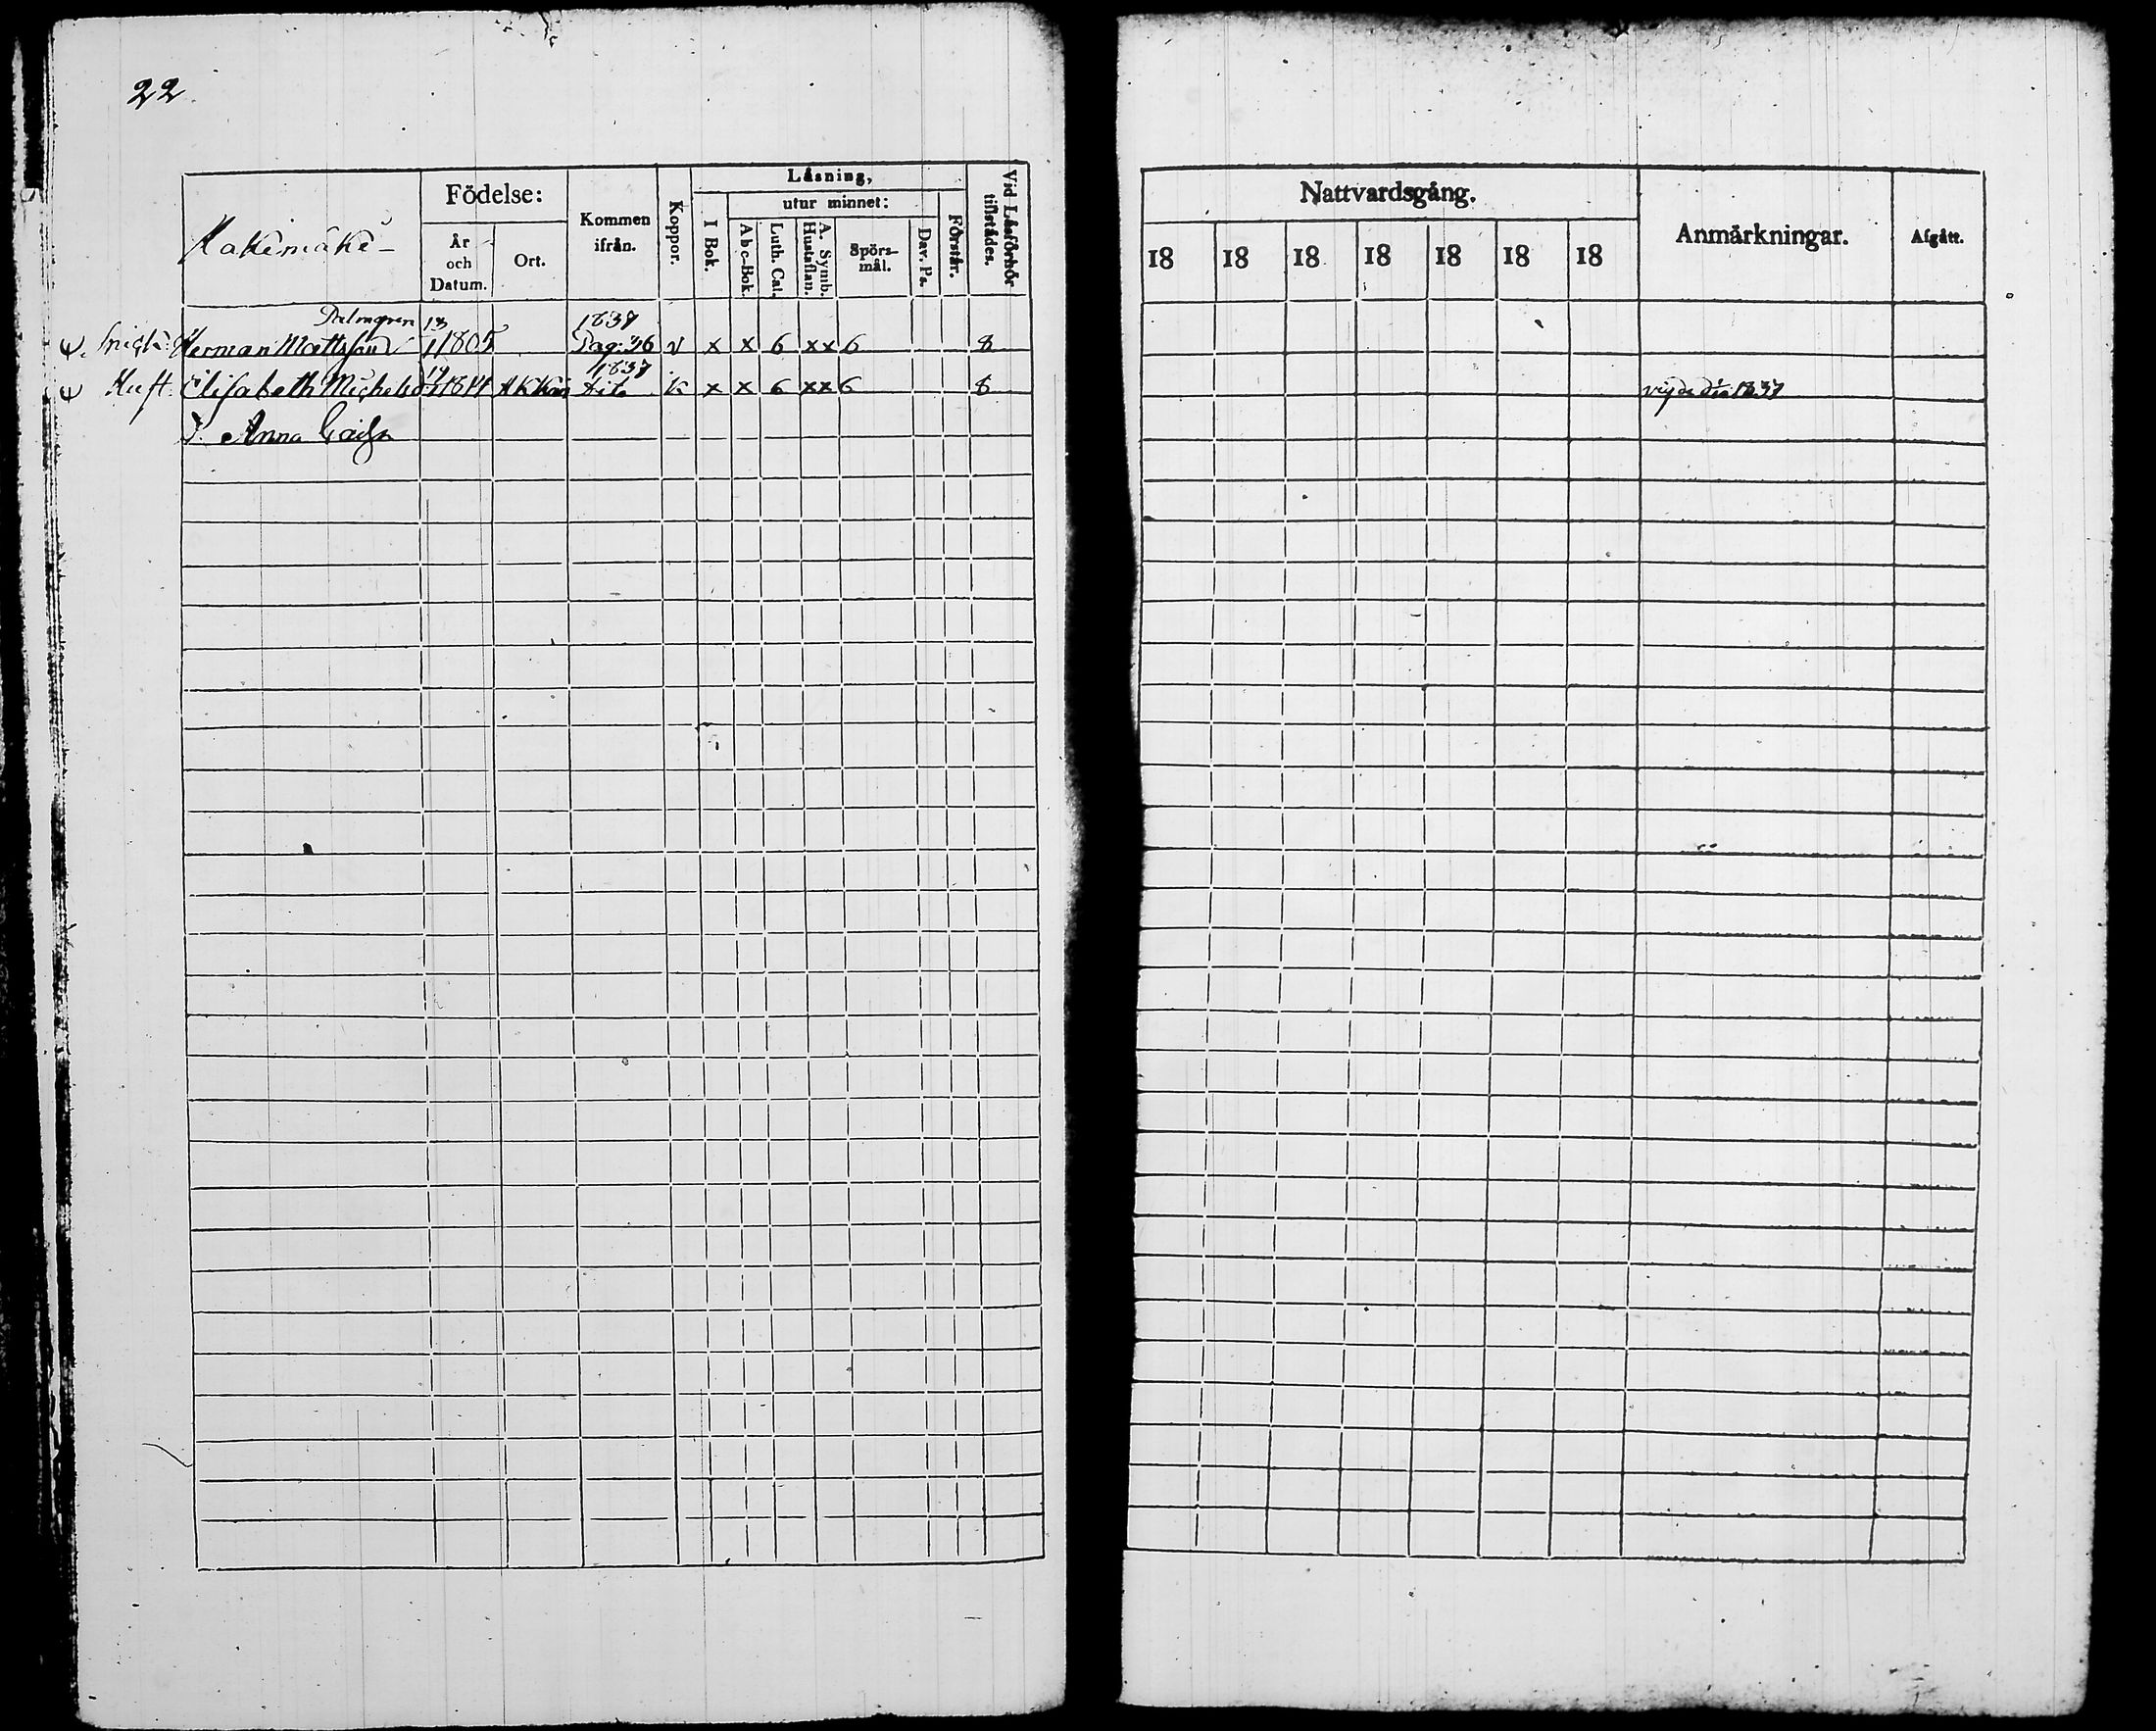 22
Födelse:
Kommen ifrån.
Koppor.
Läsning,
I Bok.
utur minnet:
Abc-Bok.
Luth. Cat.
A. Symb. Hustaflan.
Spörs-mål.
Dav. Ps.
Förstår.
Vid Läsförhör tillstädes.
År och Datum.
Ort.
Nattvardsgång.
18 18 18 18 18 18 18
Anmärkningar.
Afgått.
13 1837
Herman Mattsson 1805 Pag. 36 v x x 6 xx 6 8
1837
Hust. Elisabeth Michelsd 1814 dito k x x 6 xx 6 8 1837
Anna Caisa